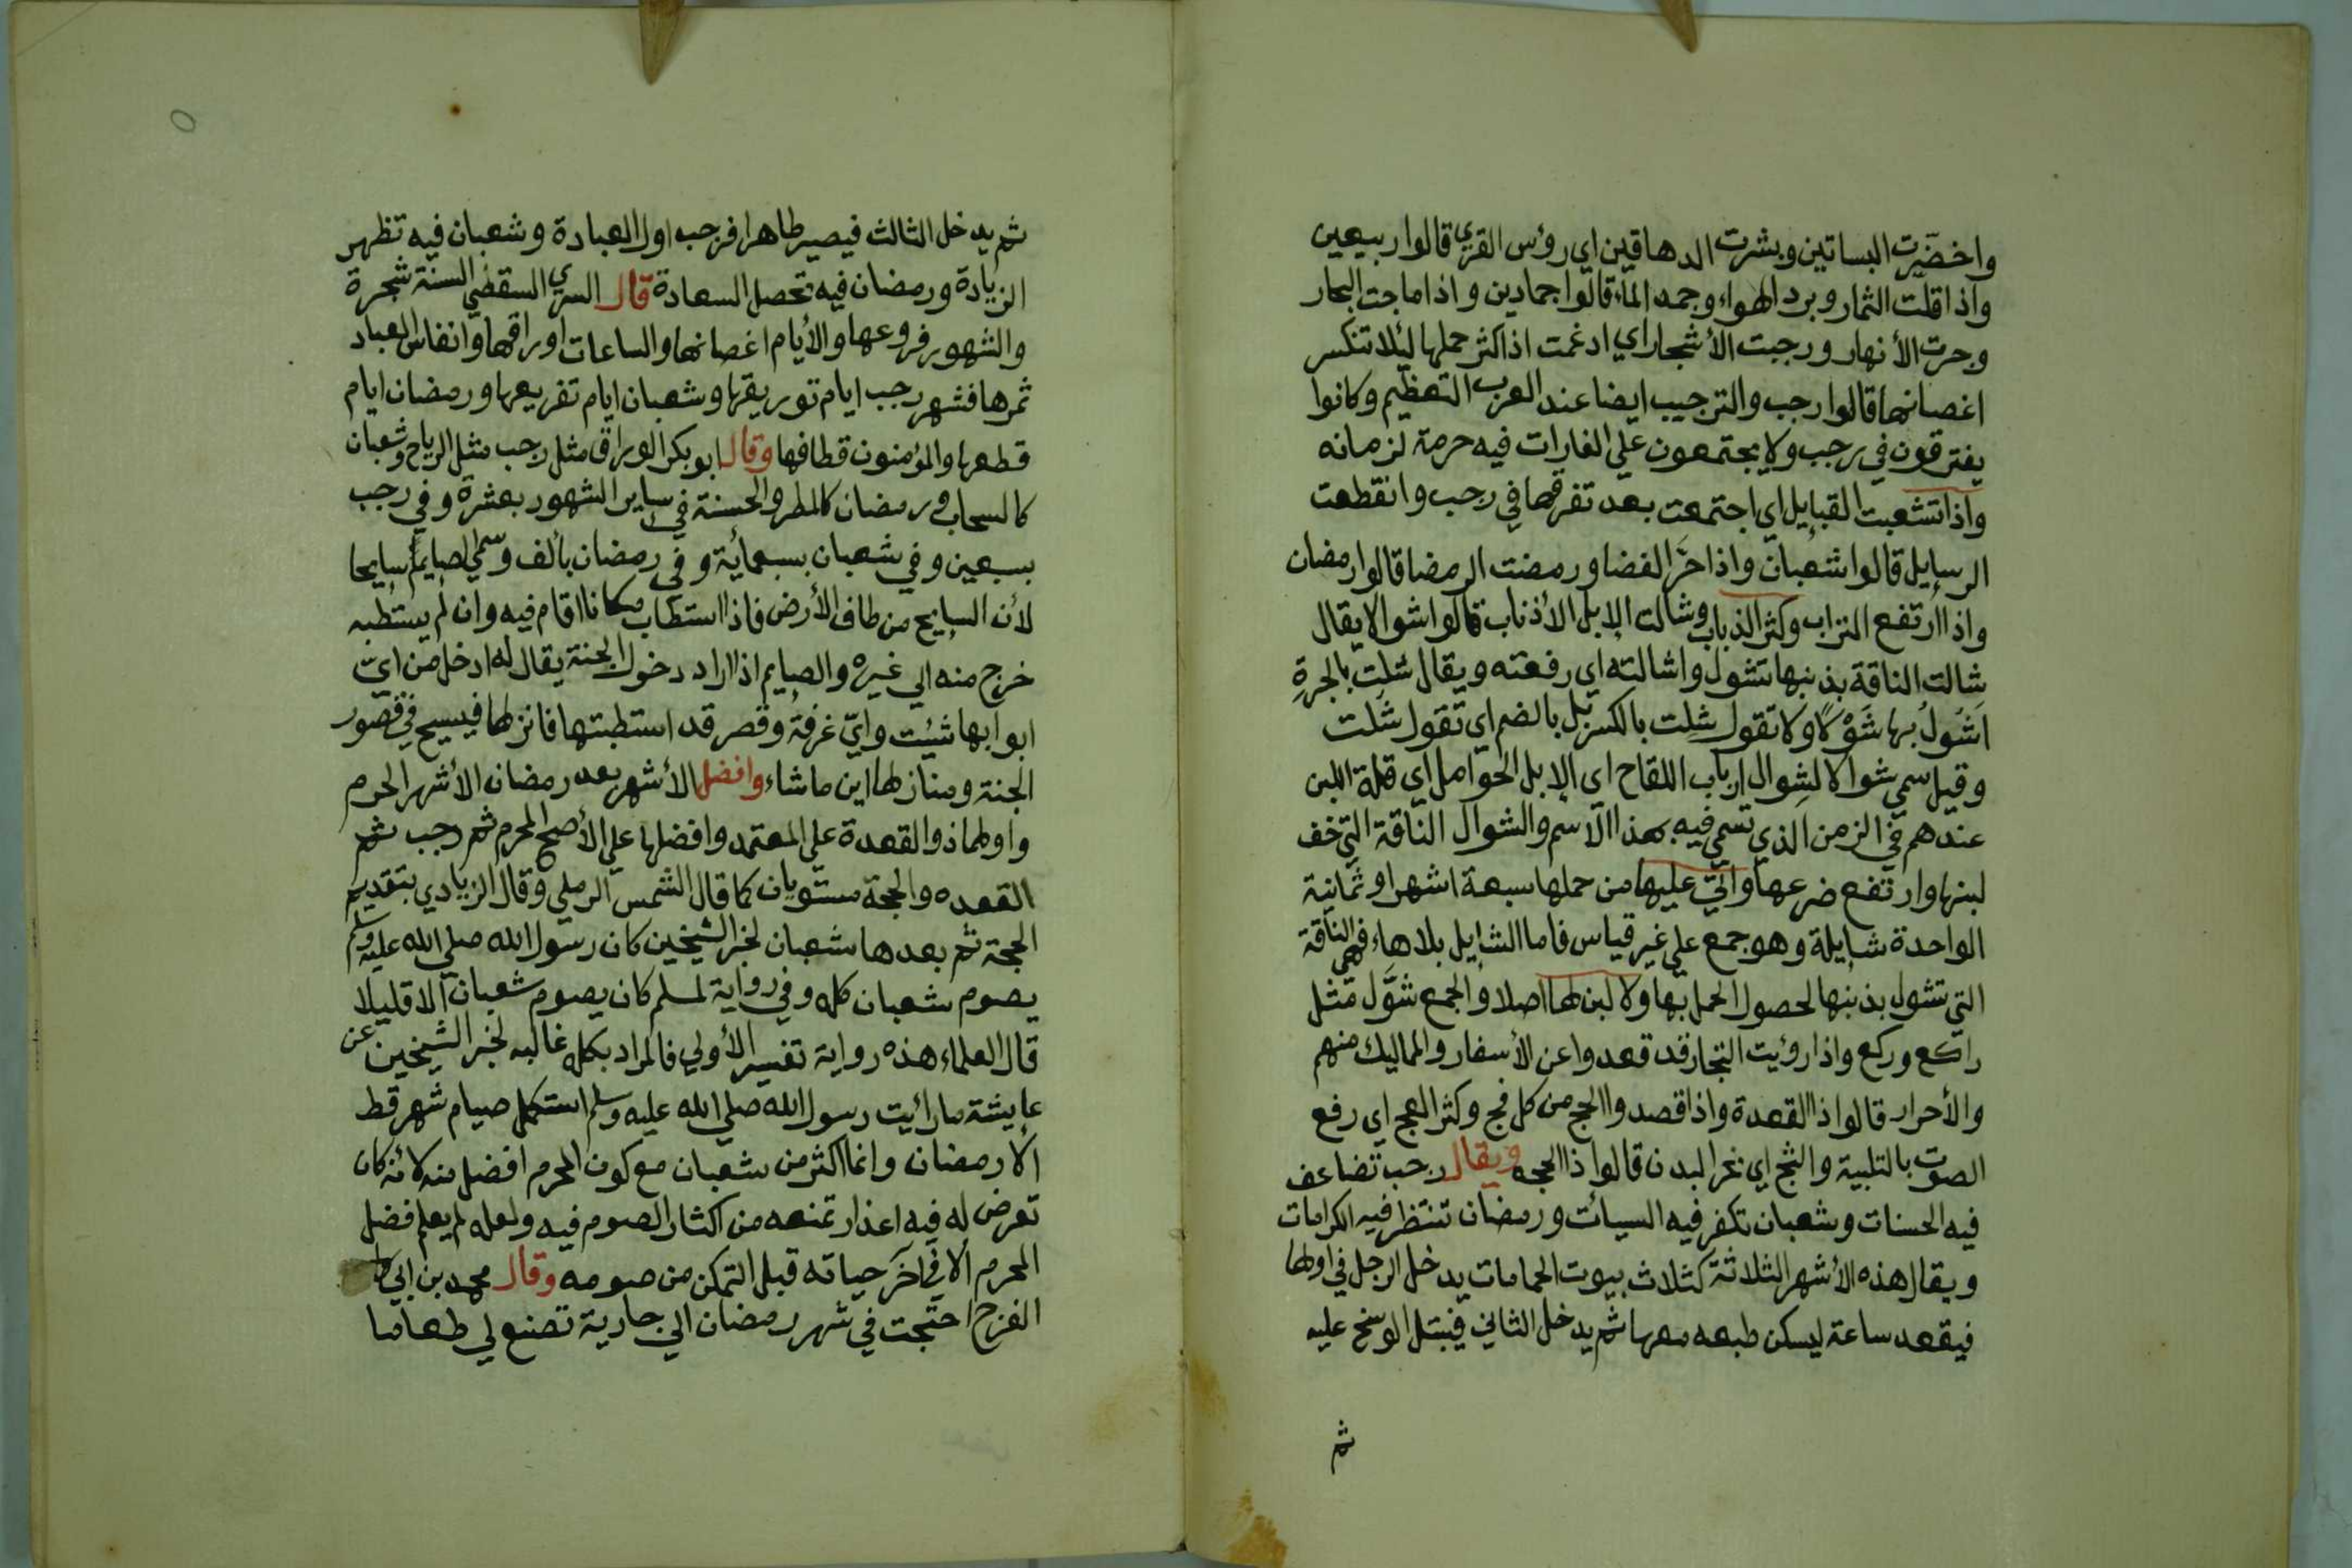 واخضَّرت البساتين وبشرت الدهاقين اي رؤس القري قالوا ربيعين
واذا قلت الثمار وبرد الهواء وجمد الماء قالوا جمادين واذا ماجت البحار
وجرت الأنهار ورجبت الأشجار اي ادغمت اذا كثر حملها لئلا تنكسر
اغصانها قالوا رجب والترجيب ايضا عند العرب التعظيم وكانوا
يفترقون في رجب ولا يجتمعون علي الغارات فيه حرمة لزمانه
واذا تشعبت القبايل اي اجتمعت بعد تفرقها في رجب وانقطعت
الرسايل قالوا شعبان واذا حَرّ الفضا ورمضت الرمضا قالوا رمضان
واذا ارتفع التراب وكثر الذباب وشالت الإبل الأذناب قالوا شوالا يقال
شالت الناقة بذنبها تشول واشالته اي رفعته ويقال شلت بالجرةِ
اَشُولُ بها شَوْلًا ولا تقول شِلت بالكسر بل بالضم اي تقول شُلت
وقيل سمي شوالا لشِوال ارباب اللقاح اي الإبل الحوامل اي قلة اللبن
عندهم في الزمن الذي تسمي فيه بهذا الاسم والشوال الناقة التي خف
لبنها وارتفع ضرعها واتي عليها من حملها سبعة اشهر او ثمانية
الواحدة شايلة وهو جمع علي غير قياس فاما الشايل بلاهاء فهي الناقة
التي تشول بذنبها لحصول الحمل بها ولا لبن لها اصلا والجمع شوَّل مثل
راكع وركع واذا رؤيت التجار قد قعدوا عن الأسفار والمماليك منهم
والأحرار قالوا ذا القعدة واذا قصدوا الحج من كل فج وكثر العج اي رفع
الصوت بالتلبية والثج اي نحر البدن قالوا ذا الحجه ويقال رجب تضاعف
فيه الحسنات وشعبان تكفر فيه السيأت ورمضان تنتظر فيه الكرامات
ويقال هذه الأشهر الثلاثة كثلاث بيوت الحمامات يدخل الرجل في اولها
فيقعد ساعة ليسكن طبعه معها ثم يدخل الثاني فيبتل الوسخ عليه
ثم
ثم يدخل الثالث فيصير طاهرا فرجب اول العبادة وشعبان فيه تظهر
الزيادة ورمضان فيه تحصل السعادة قال السري السقطي السنة شجرة
والشهور فروعها والأيام اغصانها والساعات اوراقها وانفاس العباد
ثمرها فشهر رجب ايام توريقها وشعبان ايام تفريعها ورمضان ايام
قطعها والمؤمنون قطافها وقال ابو بكر الوراق مثل رجب مثل الرياح وشعبان
كالسحاب ورمضان كالمطر والحسنة في ساير الشهور بعشرة وفي رجب
بسبعين وفي شعبان بسبعمأية وفي رمضان بألف وسمي الصايم سايحا
لأن السايح من طاف الأرض فاذا استطاب مكانا اقام فيه وان لم يستطبه
خرج منه الي غيره والصايم اذا اراد دخول الجنة يقال له ادخل من اي
ابوابها شئت واي غرفة وقصر قد استطبتها فانزلها فيسيح في قصور
الجنة ومنازلها اين ما شاء وافضل الأشهر بعد رمضان الأشهر الحرم
واولها ذو القعدة علي المعتمد وافضلها علي الأصح المحرم ثم رجب ثم
القعده والحجة مستويان كما قال الشمس الرملي وقال الزيادي بتقديم
الحجة ثم بعدها شعبان لخبر الشيخين كان رسول الله صلي الله عليه وسلم
يصوم شعبان كله وفي رواية لمسلم كان يصوم شعبان الا قليلا
قال العلماء هذه رواية تفسير الأولي فالمراد بكله غالبه لخبر الشيخين عن
عايشة ما رأيت رسول الله صلي الله عليه وسلم استكمل صيام شهر قط
الا رمضان وانما اكثر من شعبان مع كون المحرم افضل منه لأنه كان
تعرض له فيه اعذار تمنعه من اكثار الصوم فيه ولعله لم يعلم فضل
المحرم الا في آخر حياته قبل التمكن من صومه وقال محمد بن ابي
الفرج احتجت في شهر رمضان الي جارية تصنع لي طعاما